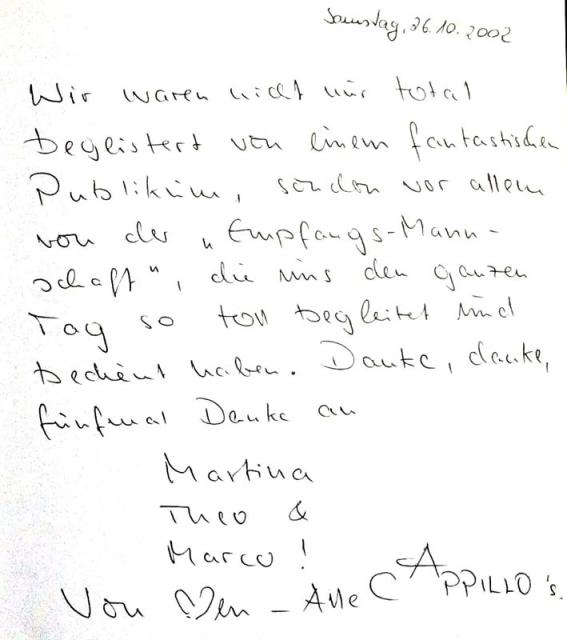 Samstag, 26.10.2002
Wir waren nicht nur total
begeistert von einem fantastischen
Publikum, sondern vor allem
von der „Empfangs-Mann-
schaft", die uns den ganzen
Tag so toll begleitet und
bedient haben. Danke, danke,
fünfmal Danke an
Martina
Theo &
Marco!
Von ♡en - Alle CAPPILLO's.